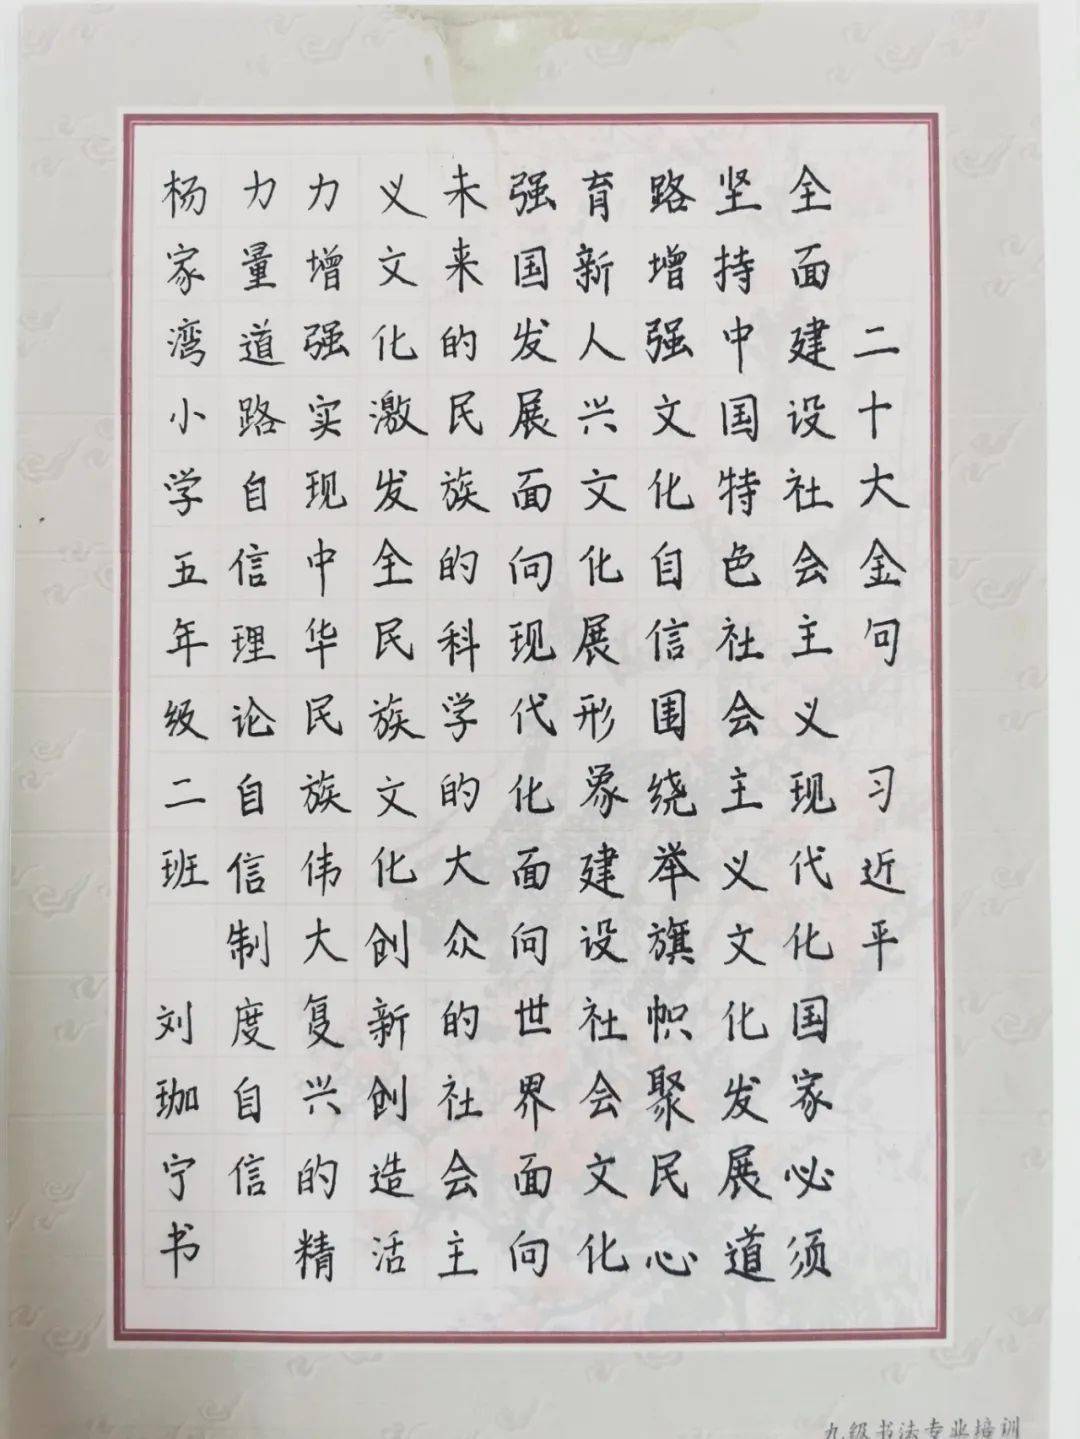 二十大金句 习近平
全面建设社会主义现代化国家必须
坚持中国特色社会主义文化发展道
路增强文化自信围绕举旗帜聚民心
育新人兴文化展形象建设社会文化
强国发展面向现代化面向世界面向
未来的民族的科学的大众的社会主
义文化激发全民族文化创新创造活
力增强实现中华民族伟大复兴的精
力量道路自信理论自信制度自信
杨家湾小学五年级二班 刘珈宁书
九级书法专业培训